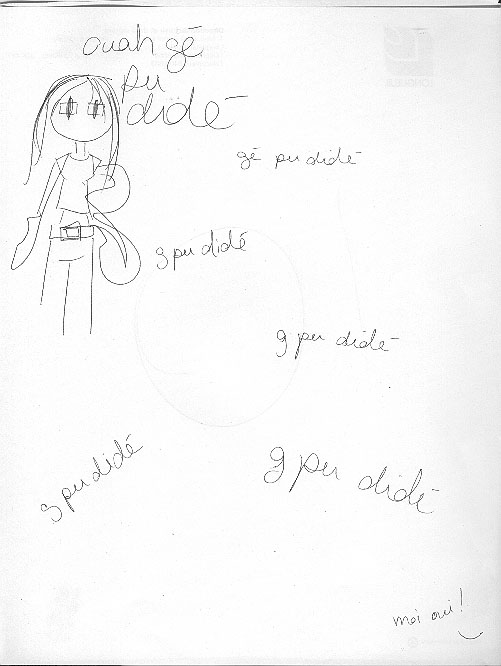 ouah gé
pu
didé
gé pu didé
g pu didé
g pu didé
g pu didé
g pu didé
moi oui !